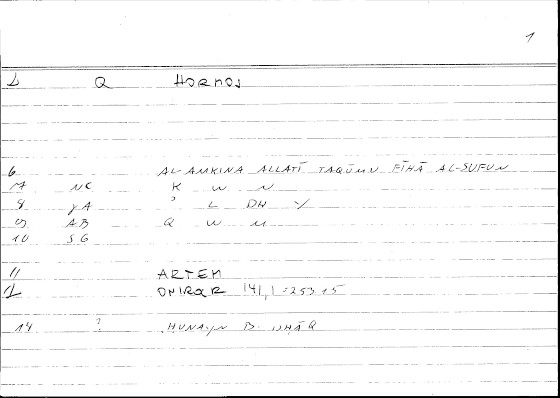 1
Q HORMOS
6 AL-AMKINA ALLATĪ TAQŪMU FĪHĀ AL-SUFUN
7 NC K W N
8 γA ʾ L DH Y
9 AB Q W M
10 SG
11 ARTEM
12 ONIROR 141,1 = 253 15
14 ? ḤUNAYN B. ISḤĀQ